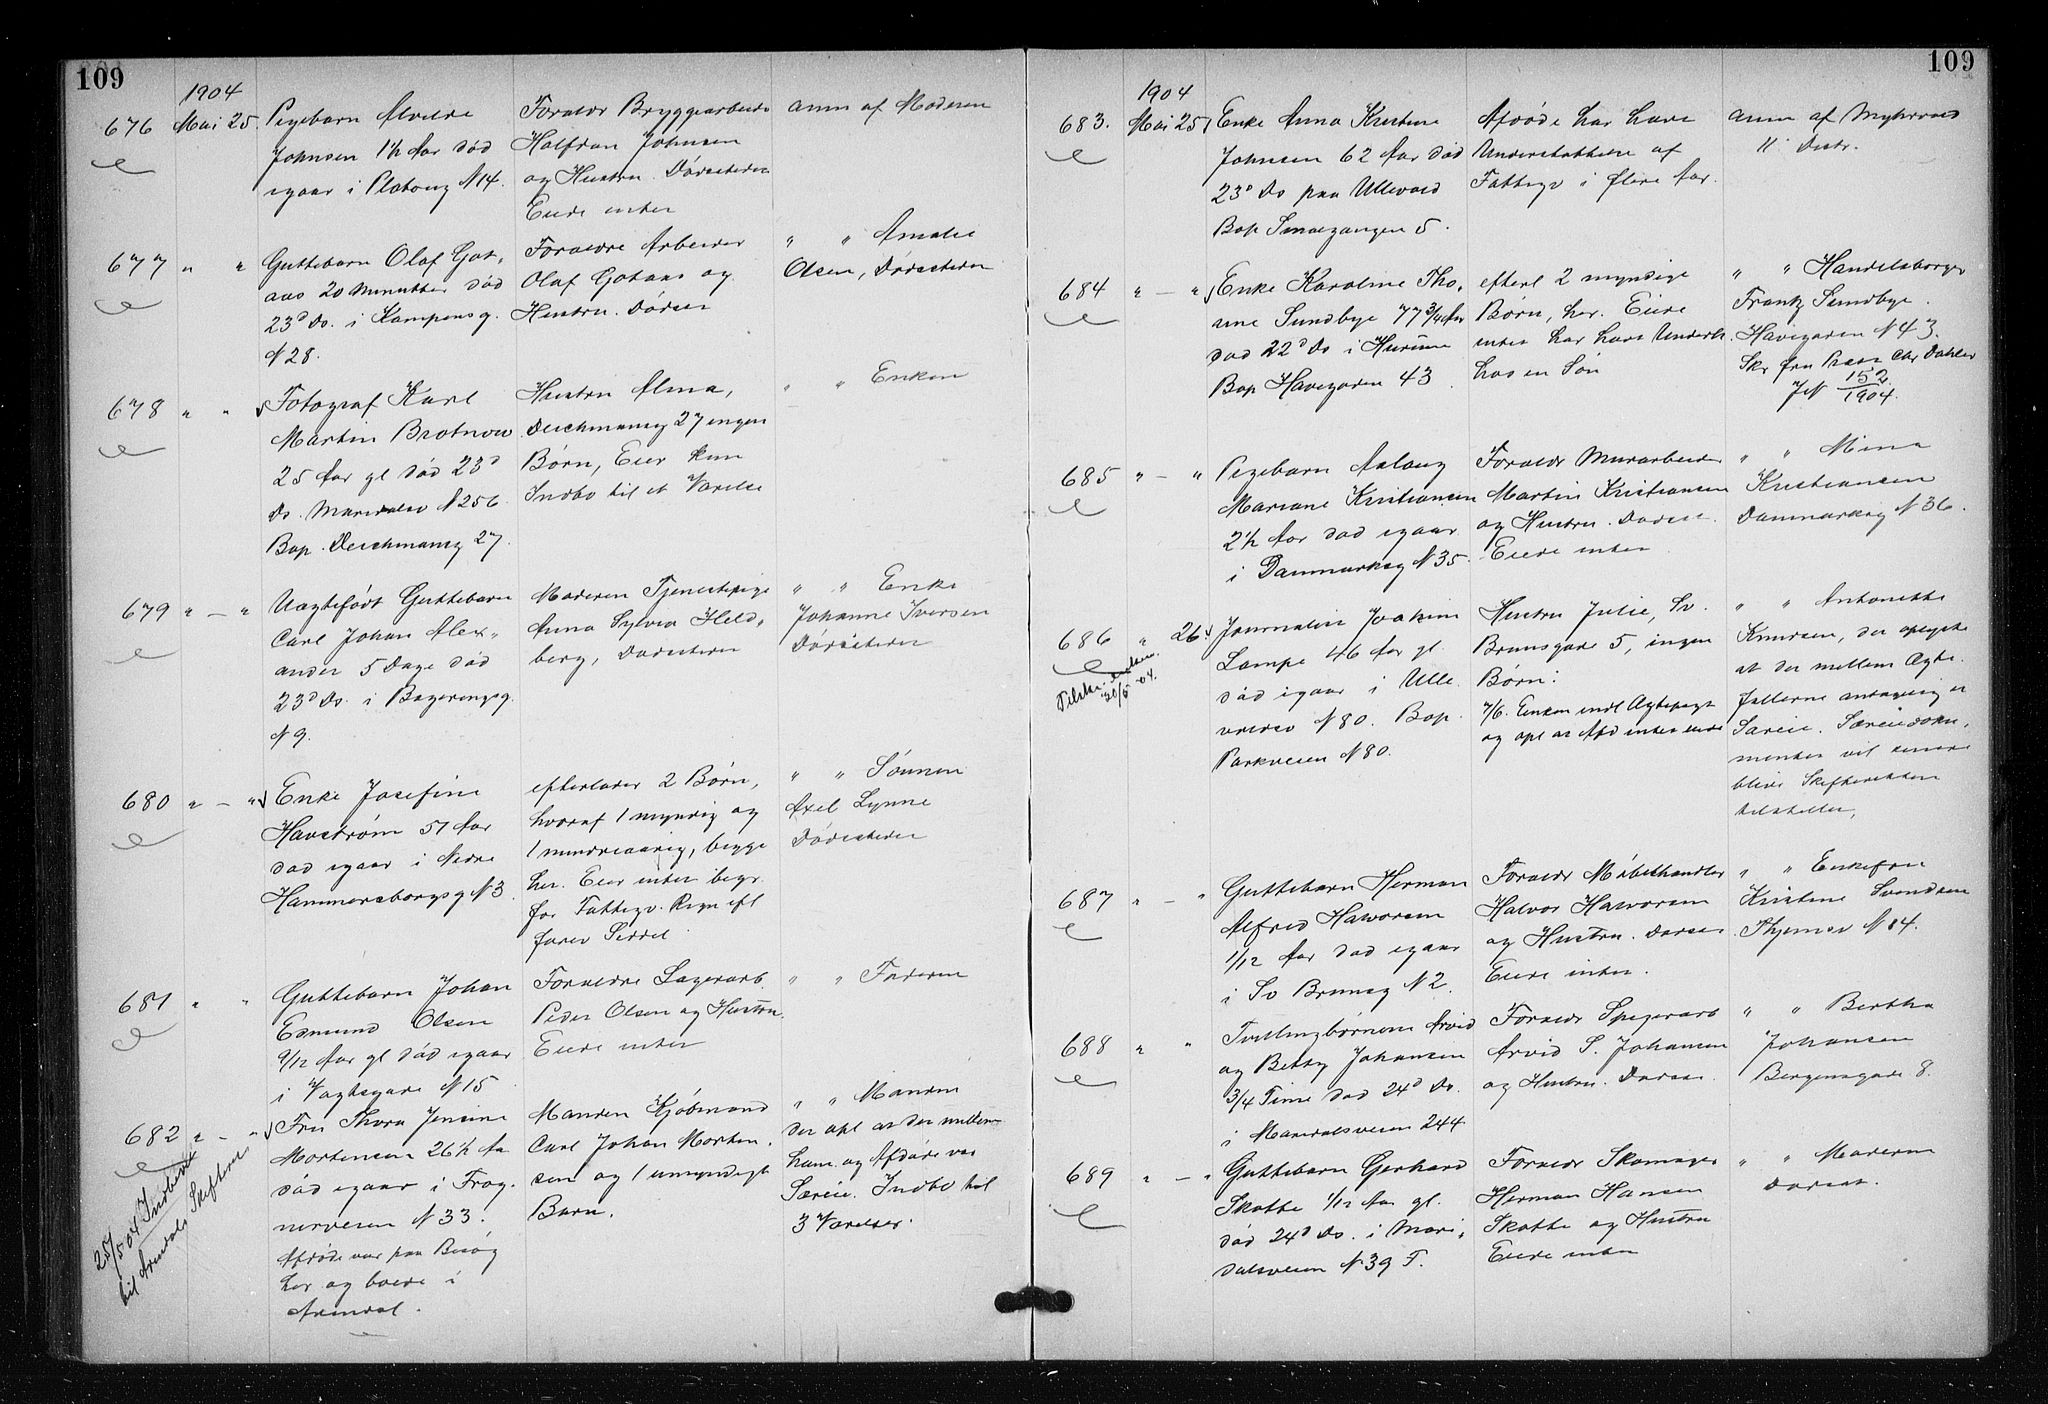 109
1904
676 Mai 25.
Pigebarn Alvilde
Johnsen 1½ Aar død
igaar i Platoug N 14.
Forældr Bryggearbeider
Halfdan Johnsen
og Hustru. Dødsstedet
Eiede intet
anm af Moderen
677 " "
Guttebarn Olaf Got,
aas 20 Minutter død
23d Ds. i Kampensg.
N 28.
Forældre Arbeider
Olaf Gotaas og
Hustru. Dødsst
" " Amalie
Olsen, Dødsstedet
678 " "
Fotograf Karl
Martin Brotnow
25 Aar gl død 23d
Ds. Maridalsv N 256.
Bop. Deichmansg 27.
Hustru Alma,
Deichmansg 27 ingen
Børn, Eier kun
Indbo til et Værelse
" " Enken
679 " — "
Uægtefødt Guttebarn
Carl Johan Alex„
ander 5 Dage død
23d Ds. i Bøgerengsg.
N 9.
Moderen Tjenestepige
Anna Sylvia Held„
berg, Dødsstedet
" " Enke
Johanne Iversen
Dødsstedet
680 " — "
Enke Josefine
Havstrøm 51 Aar
død igaar i Nedre
Hammersborgsg N 3
efterlader 2 Børn,
hvoraf 1 myndig og
1 mindreaarig, begge
her. Eier intet begr.
for Fattigv. Regn eft
farev Seddel.
" " Sønnen
Axel Lynne
Dødsstedet
681 " "
Guttebarn Johan
Edmund Olsen
9/12 Aar gl død igaar
i Vogtsgade N 15
Forældre Lagerarb.
Peder Olsen og Hustru.
Eiede intet
" " Faderen
682 " — "
25/5 04 Indberet
til Arendals Skifteret
Fru Thora Jensine
Mortensen 26½ Aa
død igaar i Frog„
nerveien N 33.
Afdøde var paa Besøg
her og boede i
Arendal.
Manden Kjøbmand
Carl Johan Morten„
sen og 1 umyndigt
Barn.
" " Manden
der opl at der mellem
ham og Afdøde var
Særeie. Indbo til
3 Værelser.
109
1904
683. Mai 25
Enke Anna Kristine
Johnsen 62 Aar død
23d Ds paa Ullevold
Bop Smalgangen 5.
Afdøde har havt
Understøttelse af
Fattigv i flere Aar.
anm af Myhrvold
11 Distr.
684 " — "
Enke Karoline Tho„
rine Sundbye 77 3/4 Aar
død 22d Ds i Hurum
Bop Havegaden 43
efterl 2 myndige
Børn, her. Eiede
intet har havt Underh.
hos en Søn
" " Handelsborger
Frantz Sundbye.
Havegaden N 43.
Skr fra Præst Chr Dahler
JN 152/1904.
685 " — "
Pigebarn Aslaug
Mariane Kristiansen
2½ Aar død igaar
i Danmarksg N 35.
Forældr Murarbeider
Martin Kristiansen
og Hustru. Dødsst.
Eiede intet
" " Mina
Kristiansen
Danmarksg N 36.
686 " 26
30/5 04.
Journalist Joakim
Lampe 46 Aar gl.
død igaar i Ulle„
voldsv N 80. Bop.
Parkveien N 80.
Hustru Julie, Sv.
Brunsgade 5, ingen
Børn:
7/6. Enken indl Ægtepagt
og opl at Afd intet eiede
" " Antonette
Knudsen, der oplyste
at der mellem Ægte„
fællerne antagelig er
Særeie. Særeiedoku„
mentet vil senere
blive Skifteretten
tilstillet,
687 " — "
Guttebarn Herman
Alfred Halvorsen
1/12 Aar død igaar
i Sv Brunsg N 2.
Forældr Møbelhandler
Halvor Halvorsen
og Hustru. Dødsst
Eiede intet.
" " Enkefru
Kristine Svendsen
Thjemsv N 14.
688 " "
Tvillingbørnene Arvid
og Betsy Johansen
3/4 Time død 24d Ds.
i Maridalsveien 244
Forældr Spigerarb
Arvid S. Johansen
og Hustru. Dødsst.
" " Bertha
Johansen
Bergensgade 8.
689 " — "
Guttebarn Gerhard
Skotte 1/12 Aar gl.
død 24d Ds. i Mari„
dalsveien N 39 F.
Forældr Skomager
Herman Hansen
Skotte og Hustru
Eiede intet
" " Moderen
Dødsst.